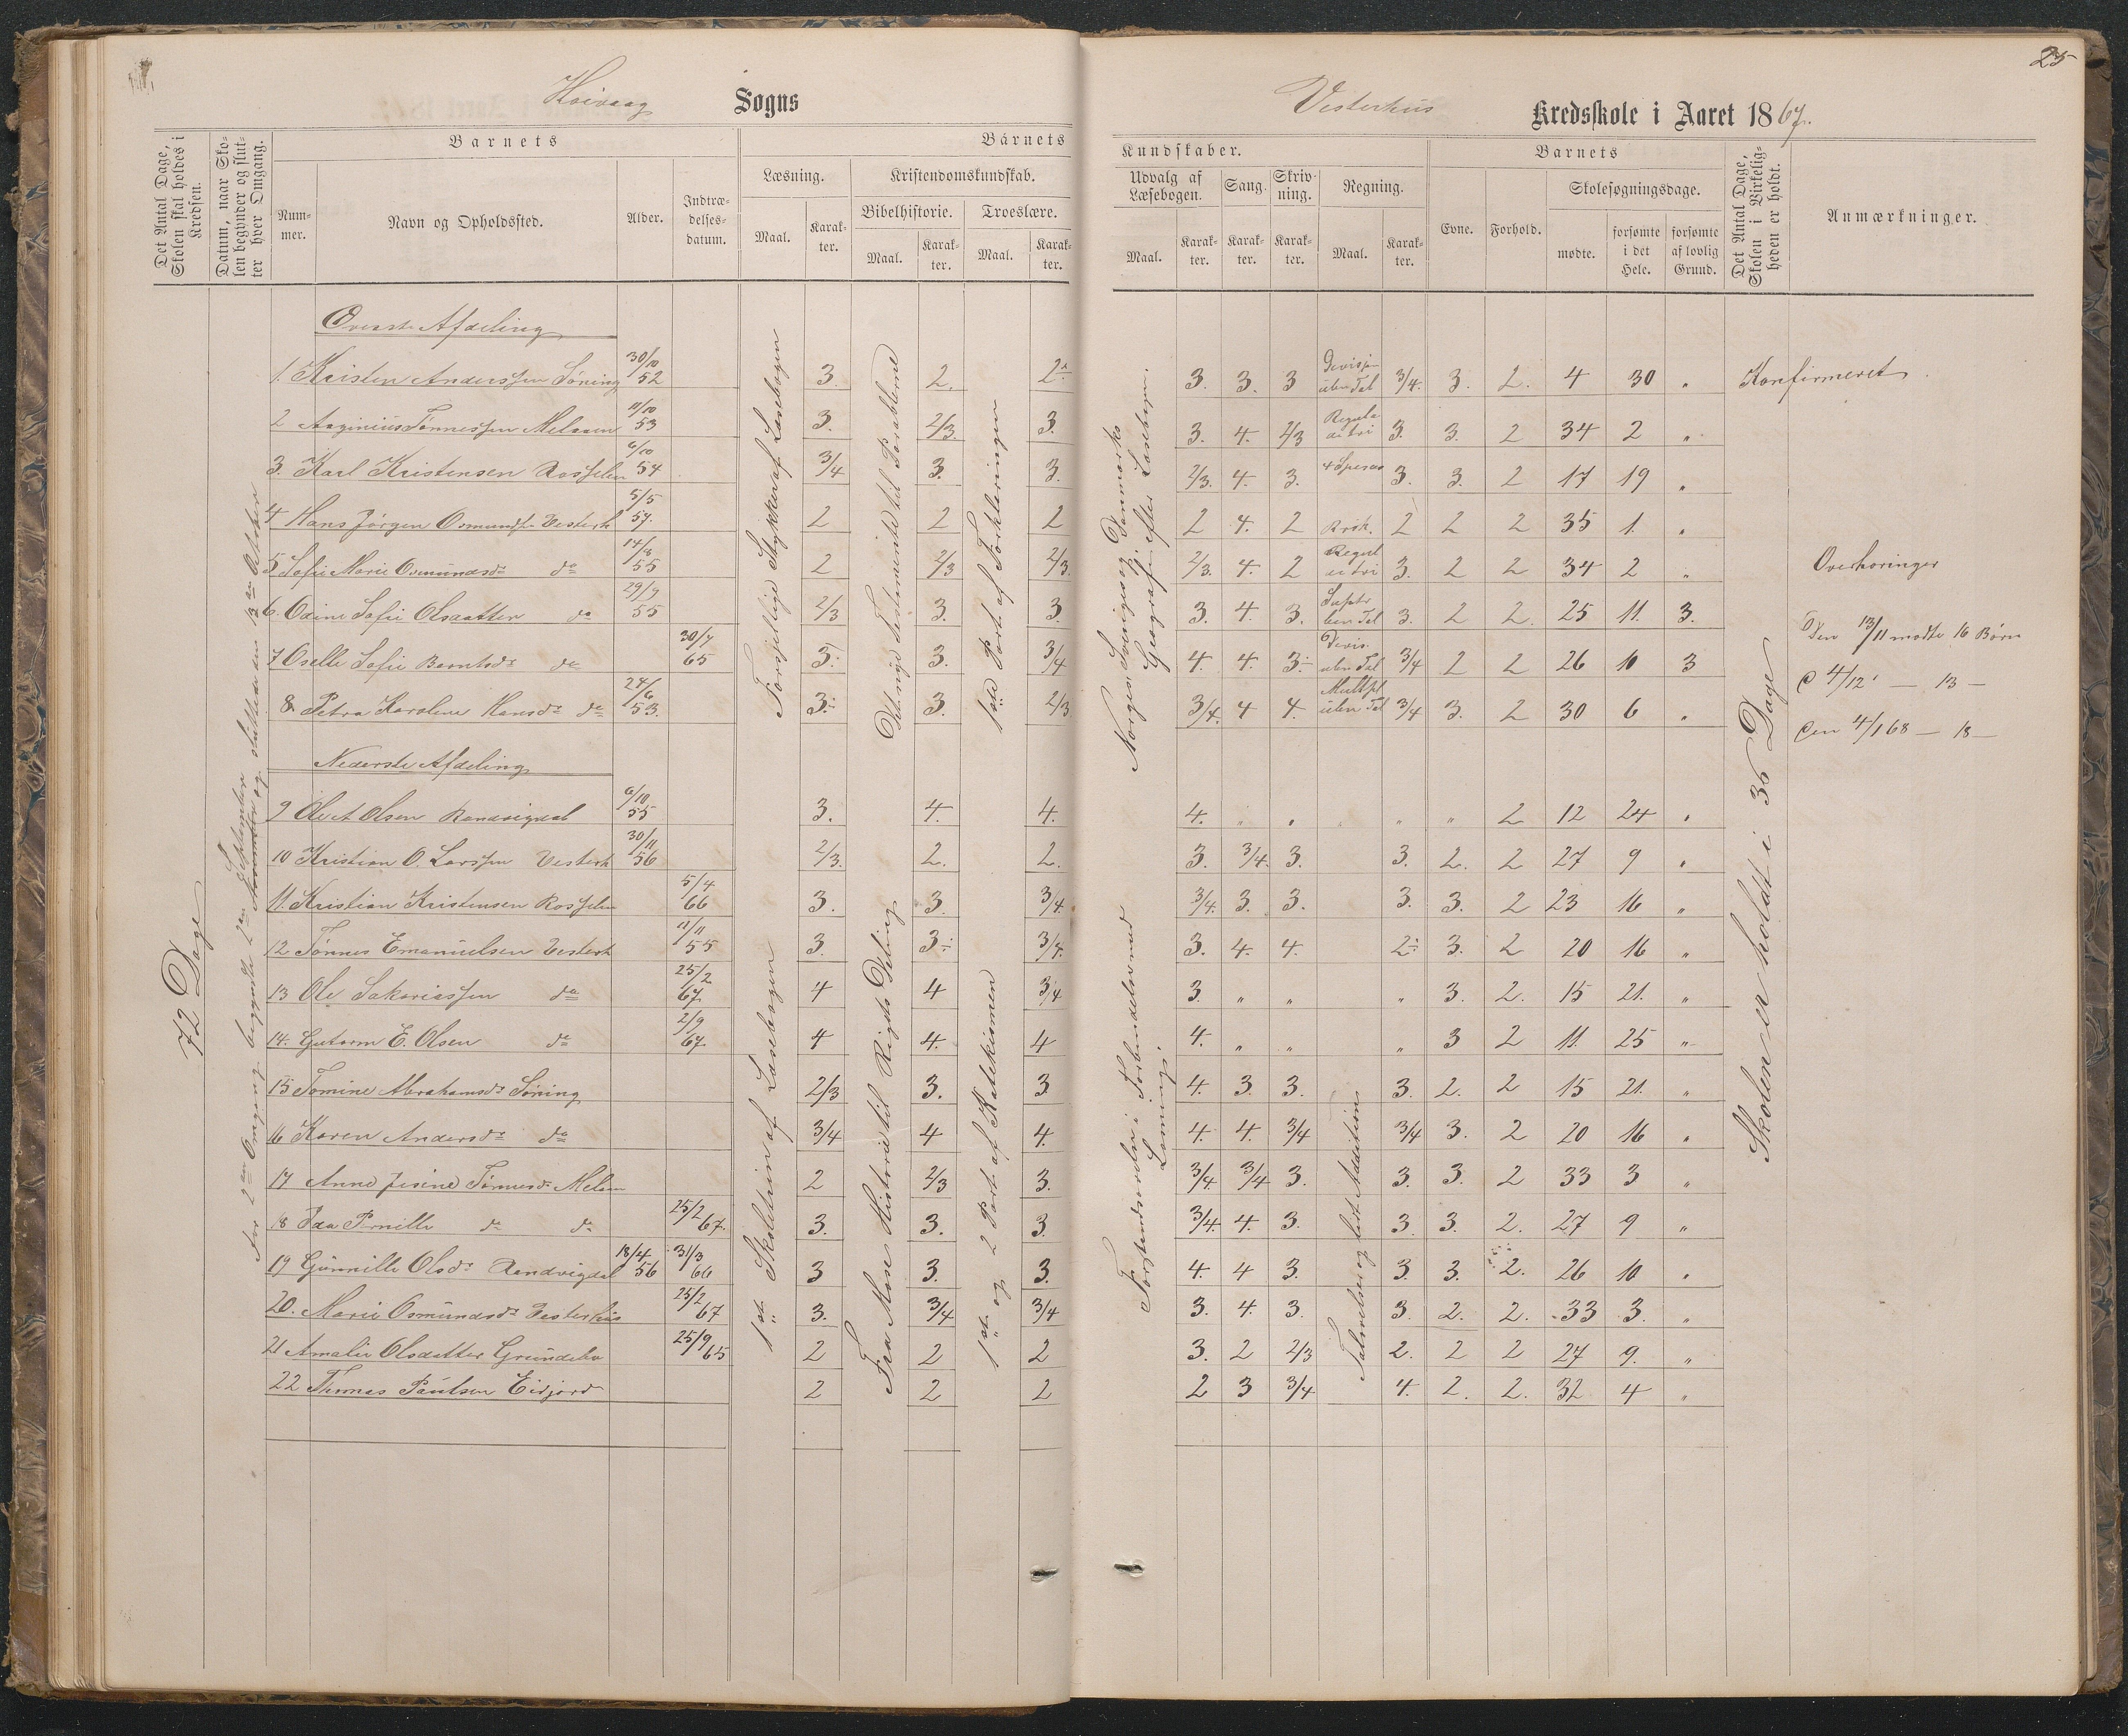 25
Høivaag Sogns
Vesterhus Kredsskole i Aaret 1867.
Det Antal Dage, Skolen skal holdes i Kredsen.
Datum, naar Skolen begynder og slutter hver Omgang.
Barnets
Nummer.
Navn og Opholdssted.
Alder.
Indtrædelsesdatum.
Barnets
Læsning.
Maal.
Karakter.
Kristendomskundskab.
Bibelhistorie.
Maal.
Karakter.
Troeslære.
Maal.
Karakter.
Kundskaber.
Udvalg af Læsebogen.
Maal.
Karakter.
Sang.
Karakter.
Skrivning.
Karakter.
Regning.
Maal.
Karakter.
Barnets
Evne.
Forhold.
Skolesøgningsdage.
mødte.
forsømte i det Hele.
forsømte af lovlig Grund.
Det Antal Dage, Skolen i Virkeligheden er holdt.
Anmærkninger.
72 Dage
Øverste Afdeling
1. Kristen Anderssen Søning 30/10 52 3. 2. 2 3. 3. 3 Divisj. uben Tal 3/4. 3. 2. 4 30 " Konfirmeret.
2 Aaginius Tønnessen Melaaen 11/10 53 3. 2/3. 3. 3. 4. 2/3 Regula de tri 3. 3. 2 34 2 "
3. Karl Kristensen Rosselen 6/10 54 3/4 3. 3. 2/3. 4. 3. 4 Species 3. 3. 2 17 19 "
4 Hans Jørgen Osmunds. Vesterh 5/5 57. 2 2 2 2 4. 2 Brøk. 2 2 2 35 1. "
5 Sofie Marie Osmundsdr do 14/8 55 2 2/3 2/3. 2/3. 4. 2 Regul de tri 3. 2 2 34 2 "
6. Odine Sofie Olsdatter do 29/9 55 2/3 3. 3. 3. 4. 3. 3. 2 2. 25 11. 3.
7 Oselle Sofie Berntsdr do 30/7 65 3. 3. 3/4 4. 4. 3 Divis. uben Tal 3/4 2 2 26 10 3
8 Petra Karoline Hansdr do 24/6 53. 3. 3. 2/3 3/4. 4 4. Multpl uben Tal 3/4 3. 2 30 6 "
Nederste Afdeling
9 Ole A Olsen Randvigdal 6/10 55 3. 4. 4. 4. " " " " 2 12 24 "
10 Kristian O. Larssen Vesterh 30/11 56 2/3. 2. 2. 3. 3/4. 3. 3. 2. 2 27 9 "
11. Kristian Kristensen Rosselen 5/4 66 3. 3. 3/4. 3/4. 3. 3. 3. 3. 2 23 16 "
12 Tønnes Emanuelsen Vesterh 11/11 55 3. 3 3/4. 3. 4. 4. 2 3. 2 20 16 "
13 Ole Sakariassen do 25/2 67. 4 4 3/4 3. " " " 3. 2. 15 21. "
14. Gutorm E. Olsen do 2/9 67. 4 4. 4 4. " " " 3 2 11. 25 "
15 Tomine Abrahamsdr Søning 2/3 3. 3 4. 3. 3. 3. 2. 2 15 21. "
16 Karen Andersdr do 3/4 4 4. 4. 4. 3/4 3/4 3. 2 20 16 "
17 Anne Jisine Tønnesdr Melaaen 2 2/3 3. 3/4. 3/4 3. 3. 3. 2 33 3 "
18 Ida Pernille do do 25/2 67. 3. 3. 3. 3/4. 4. 3. 3 3. 2. 27 9 "
19 Gunnille Olsdr Randvigdal 18/4 56 31/3 66 3 3. 3. 4. 4 3. 3. 3. 2. 26 10 "
20. Marie Osmundsdr Vesterhus 25/2 67 3. 3/4 3/4 3. 4. 3. 3. 2. 2. 33 3. "
21 Amalie Olsdatter Grundelv 25/9 65 2 2 2 3. 2 2/3 2. 2 2 27 9. "
22 Thomas Paulsen Eidjord 2 2 2 2 3 3/4 4. 2. 2. 32 4 "
Forsjellige Stykker af Læsebogen
Det nye Testamente til Parablerne
1ste Part af Forklaringen
Norges, Sveriges og Danmarks Geografi efter Læsebogen.
1ste Skoletrin af Læsebogen
Fra Mose Historie til Rigets Deling
1ste og 2 Part af Katekismen
Forstandsøvelser i Forbindelse med Læsning.
Talmelser og lidt Addition
Skolen er holdt i 36 Dage
Overhøringer
Den 13/11 mødte 16 Børn
D 4/12 — 13 —
Den 4/1 68 — 18 —